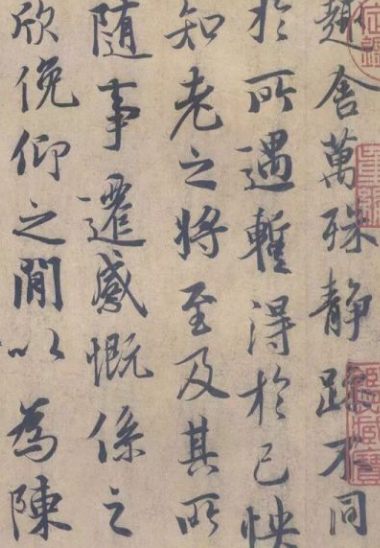 趣舍萬殊静躁不同
於所遇暫得於己怏
知老之将至及其所
随事遷感慨係之
欣俛仰之閒以為陳